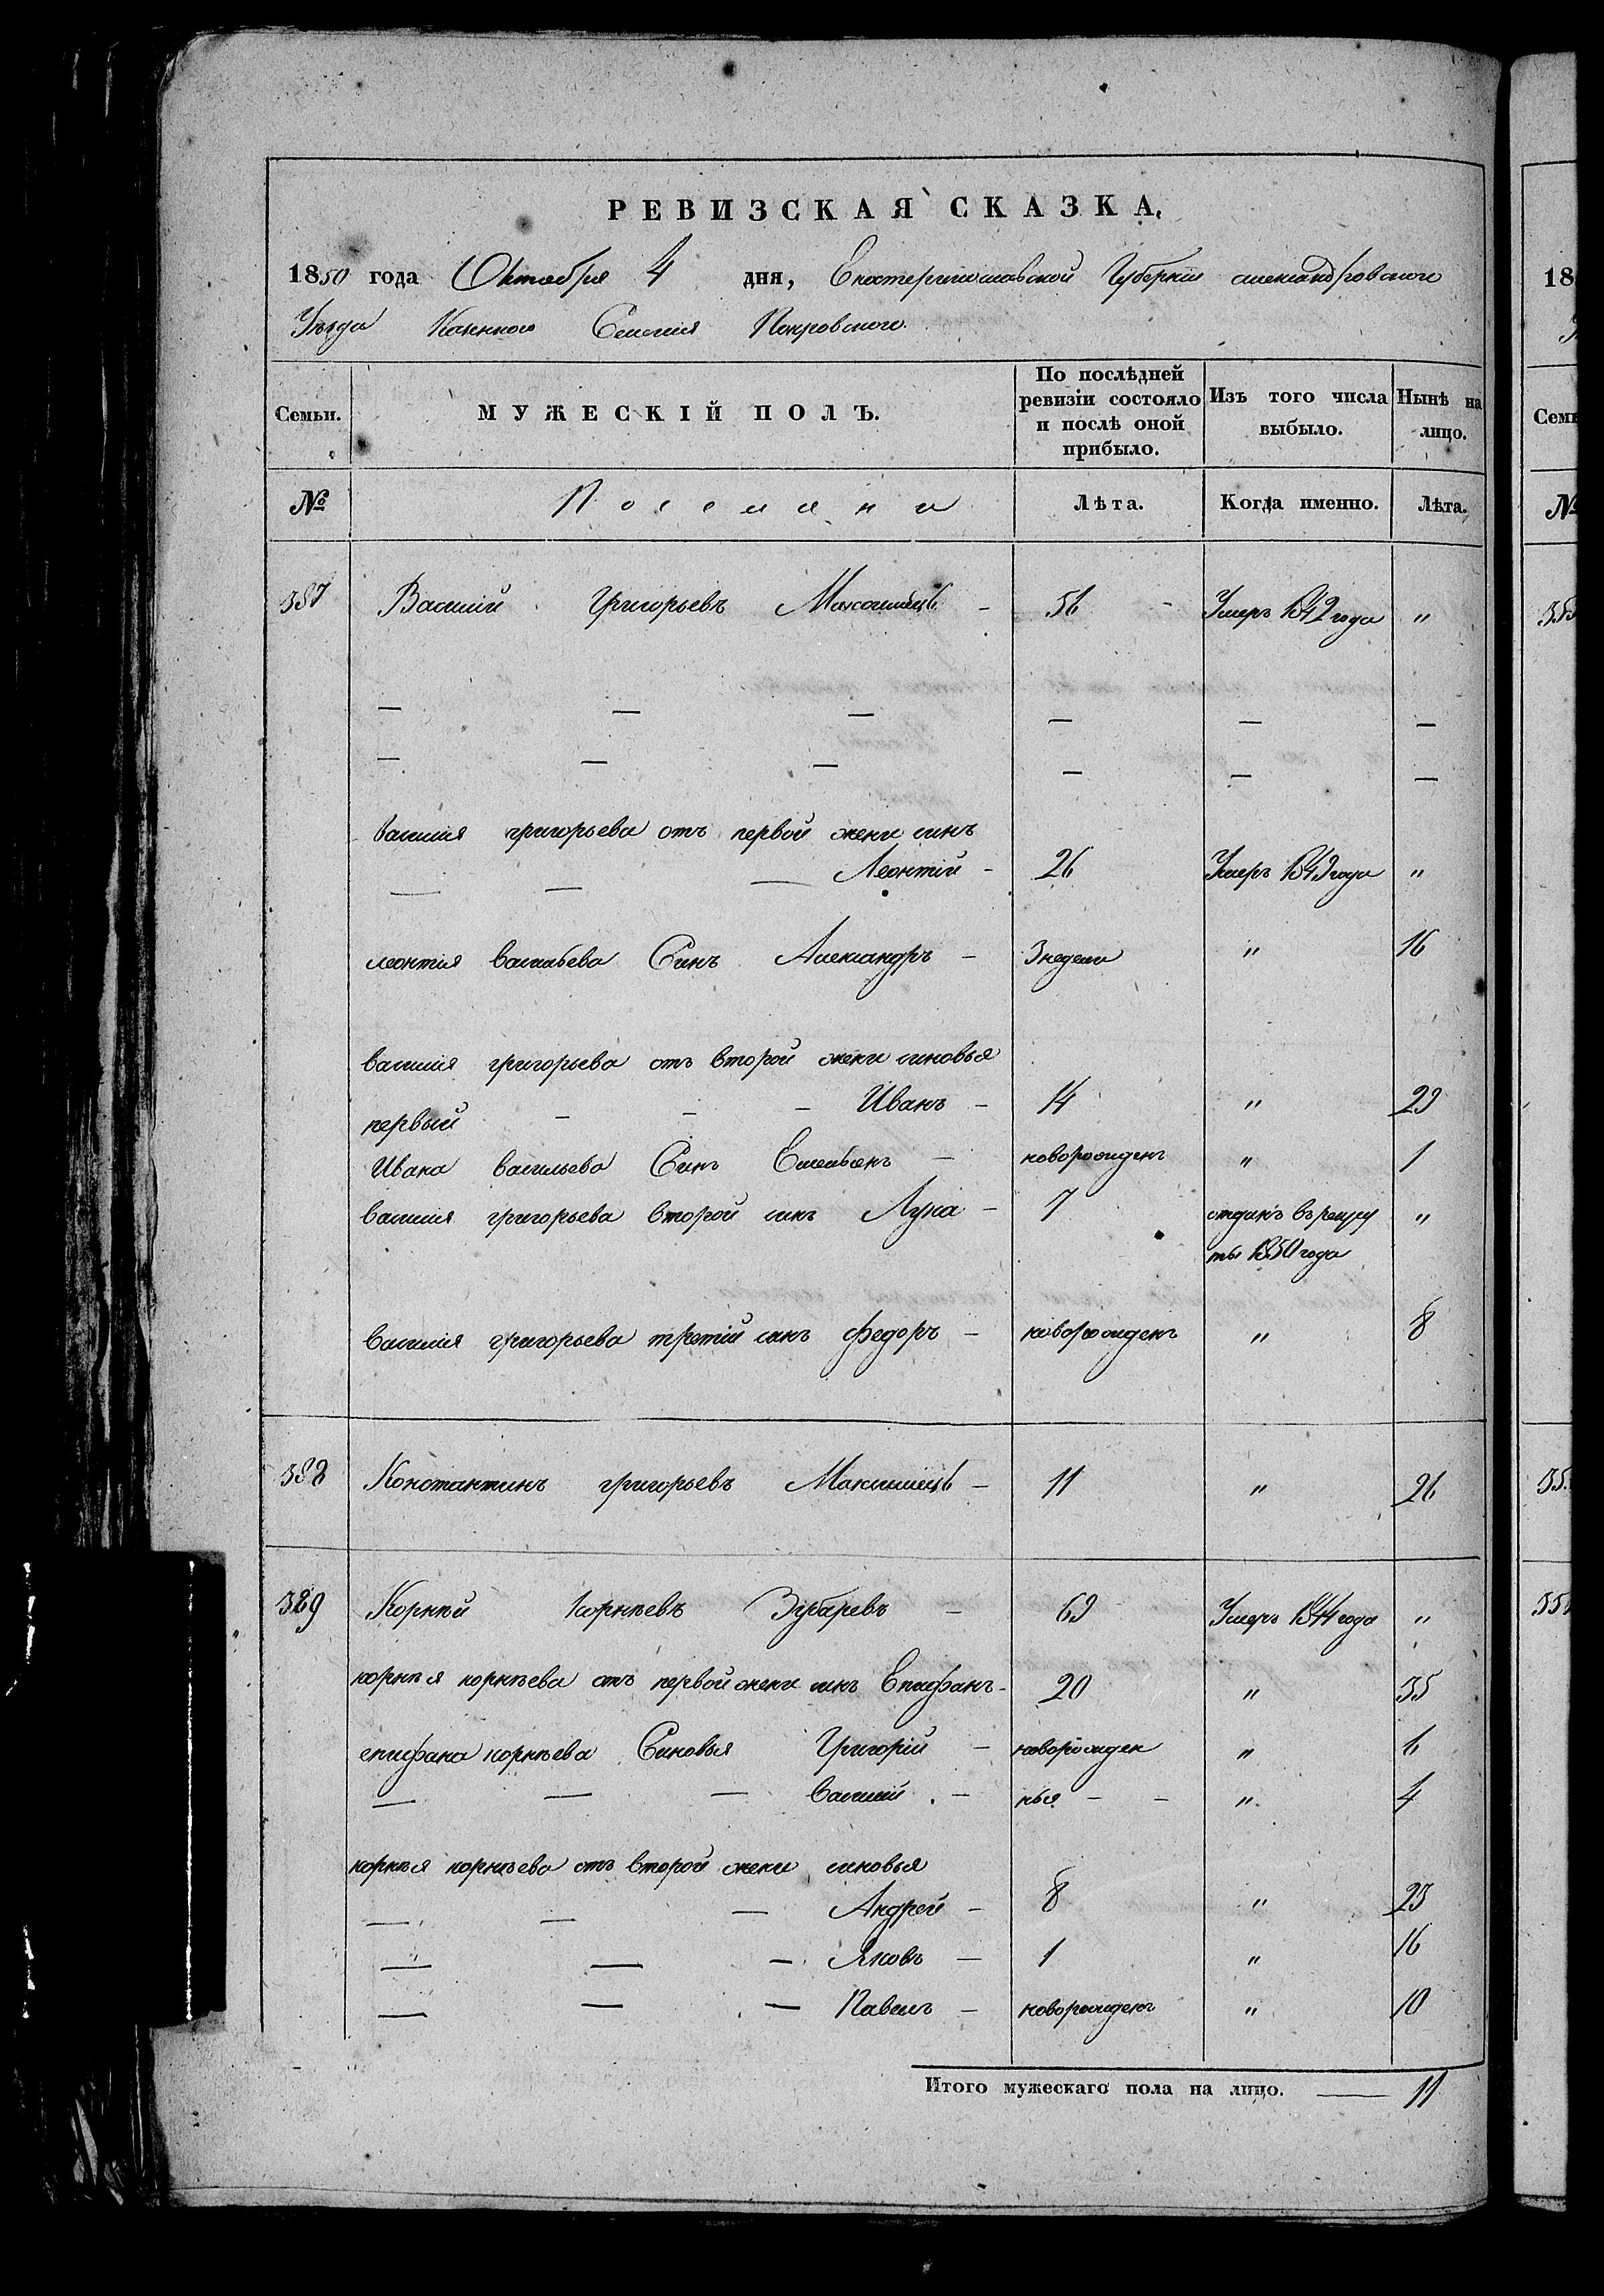 РЕВИЗСКАЯ СКАЗКА.
1850 года Октября 4 дня, Екатеринославской Губернiи александровского
Уезда Казенного Селенiя Покровского.
Семьи. МУЖЕСКIЙ ПОЛЪ. По послѣдней ревизiи состояло и послѣ оной прибыло. Изъ того числа выбыло. Нынѣ на лицо.
№ Поселяни Лѣта. Когда именно. Лѣта.
387 Василiй Григорьевъ 56 Умеръ 1842 года "
— — — — — —
— — — — — —
василiя григорьева отъ первой жени синъ
— — — Леонтiй - 26 Умеръ 1849 года "
леонтiя васильева Синъ Александръ - 3 недели " 16
василiя григорьева отъ второй жени синовья
первый - - - Иванъ - 14 " 29
Ивана васильева Синъ - новорожденъ " 1
василiя григорьева второй синъ Лука - 7 отданъ въ рекру "
ты 1850 года
василiя григорьева третiй синъ федоръ - новорожденъ " 8
388 Константинъ григорьевъ Максимецъ - 11 " 26
389 Корнѣй корнѣевъ Зубаревъ - 69 Умеръ 1844 года "
корнѣя корнѣева отъ первой жени синъ Епифанъ - 20 " 35
епифана корнѣева Синовья Григорiй - новорожден " 6
— — — василий - ныя - - " 4
корнѣя корнѣева отъ второй жени синовья
— — — Андрей - 8 " 23
— — — Яковъ - 1 " 16
— — — Павелъ - новорожденъ " 10
Итого мужескаго пола на лицо. — 11
18
Семь
№